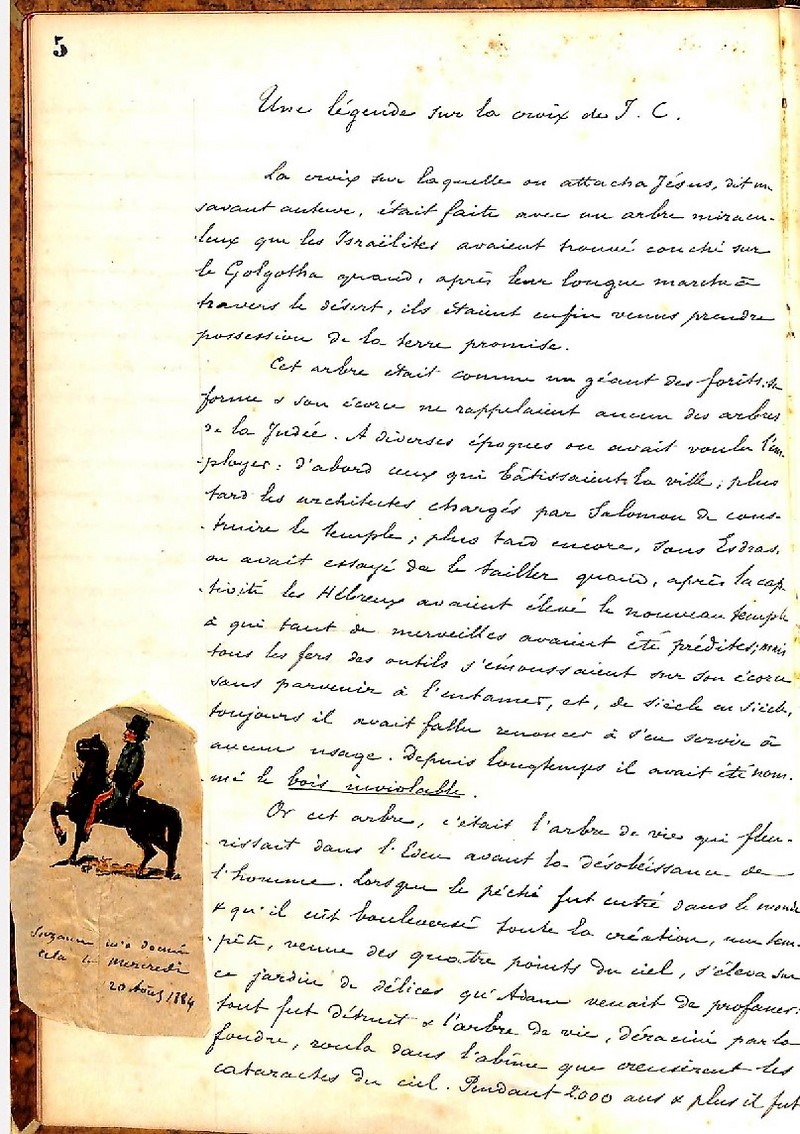 5
Une légende sur la croix de J. C.
La croix sur laquelle on attacha Jésus, dit un
savant auteur, était faite avec un arbre miracu-
leux que les Israëlites avaient trouvé couché sur
le Golgotha quand, après leur longue marche à
travers le désert, ils étaient enfin venus prendre
possession de la terre promise.
Cet arbre était comme un géant des forêts. Sa
forme & son écorce ne rappelaient aucun des arbres
de la Judée. A diverses époques on avait voulu l'em-
ployer : d'abord ceux qui bâtissaient la ville ; plus
tard les architectes chargés par Salomon de cons-
truire le temple ; plus tard encore, sous Esdras,
on avait essayé de le tailler quand, après la cap-
tivité les Hébreux avaient élevé le nouveau temple
à qui tant de merveilles avaient été prédites; mais
tous les fers des outils s'émoussaient sur son écorce
sans parvenir à l'entamer, et, de siècle en siècle,
toujours il avait fallu renoncer à s'en servir à
aucun usage. Depuis longtemps il avait été nom-
mé le bois inviolable.
Or cet arbre, c'était l'arbre de vie qui fleu-
rissait dans l'Eden avant la désobéissance de
l'homme. Lorsque le péché fut entré dans le monde
& qu'il eût bouleversé toute la création, une tem-
pête, venue des quatre points du ciel, s'éleva sur
ce jardin de délices qu'Adam venait de profaner:
tout fut détruit & l'arbre de vie, déraciné par la
foudre, roula dans l'abîme que creusèrent les
cataractes du ciel. Pendant 2000 ans & plus il fut
Suzanne m'a donné
cela le Mercredi
20 Août 1884